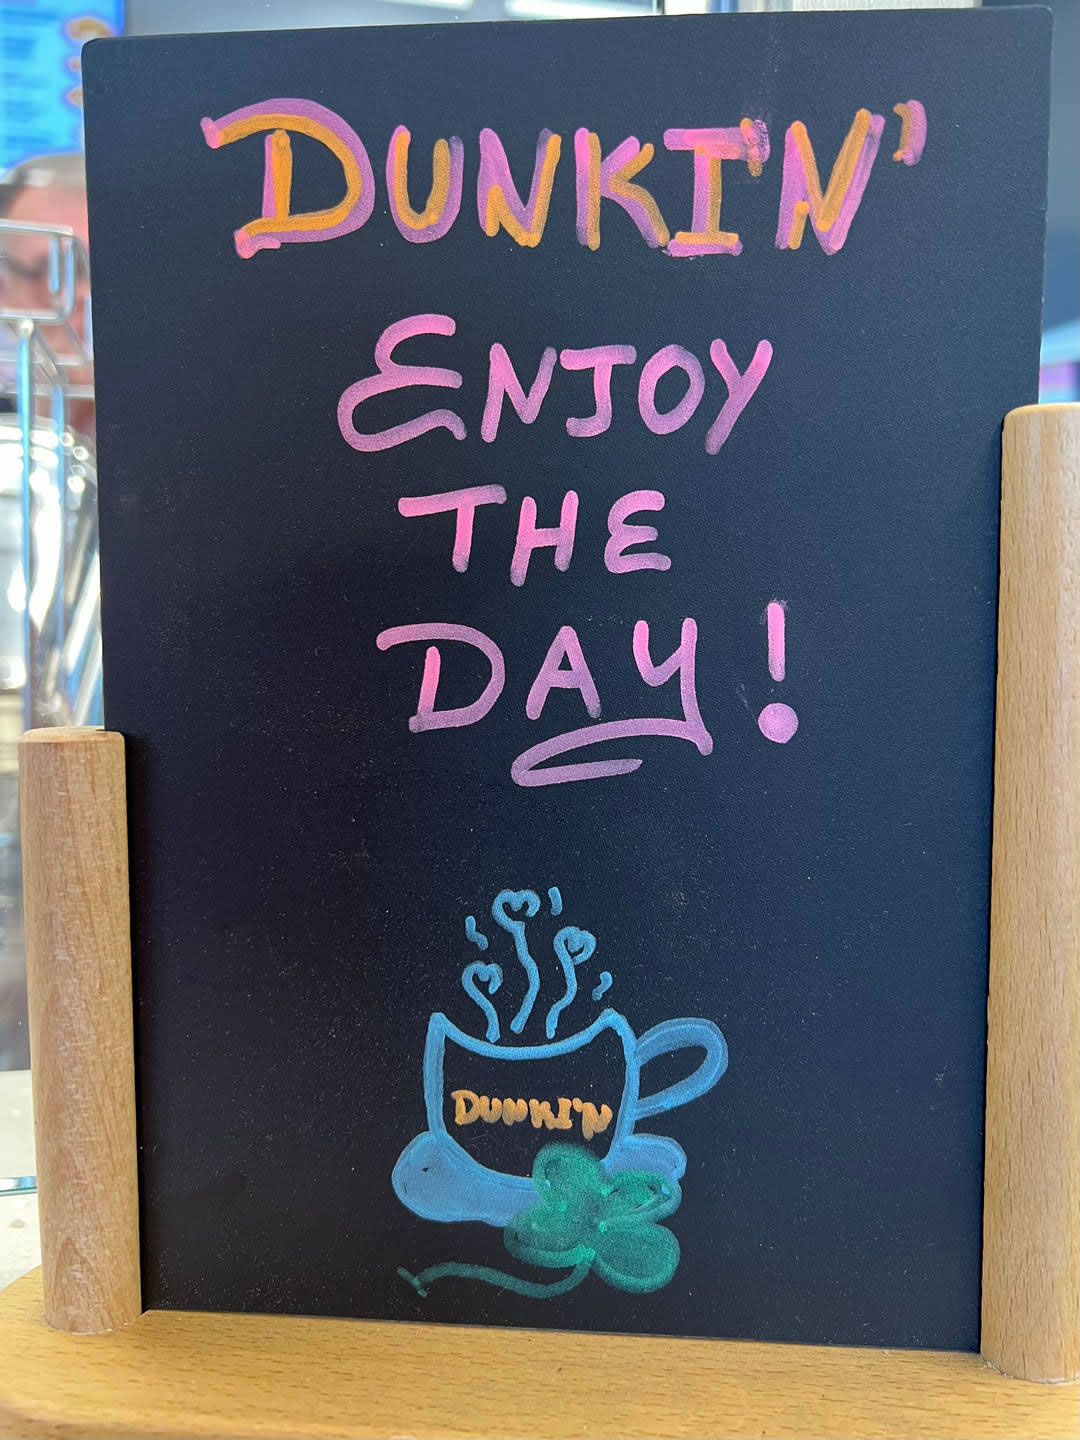 DUNKI'N'
ENJOY
THE
DAY!
DUNKI'N